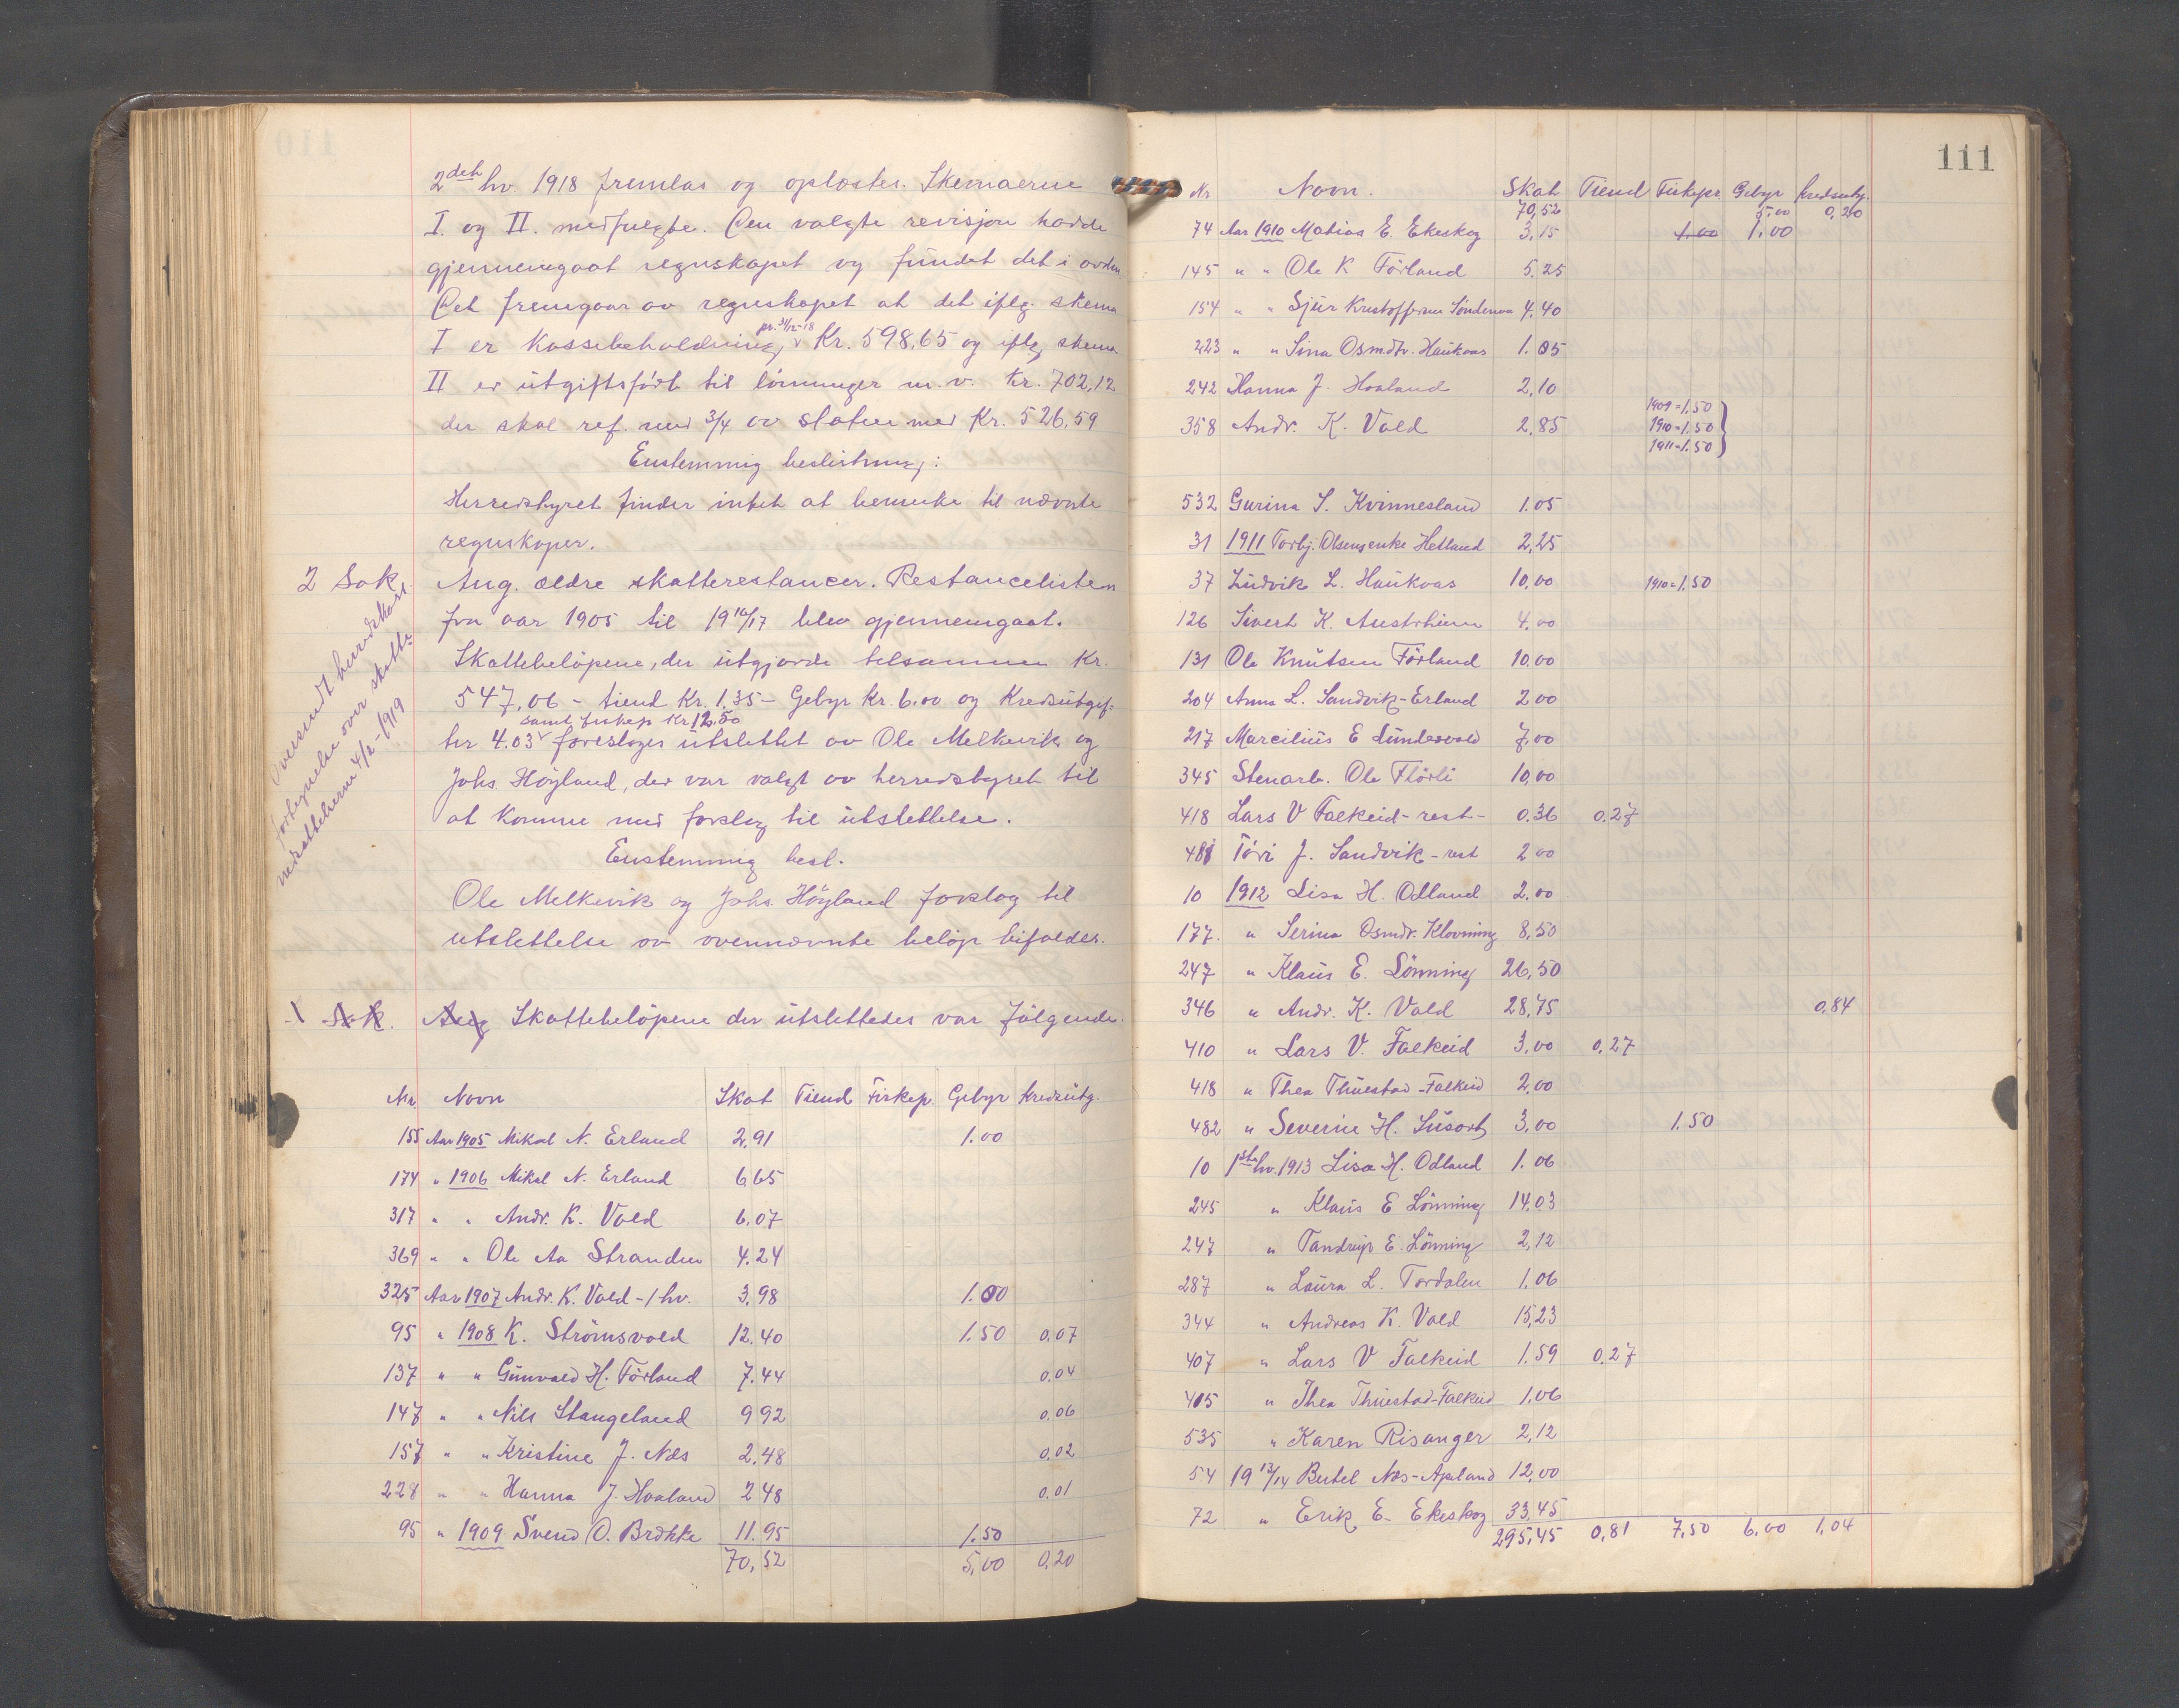 2det hv. 1918 fremlas og oplæstes. Skemaerne
I. og II. medfulgte. Den valgte revisjon havde
gjennemgaat regnskapet og fundet det i orden
Det fremgaar av regnskapet at det iflg. skema
I er Kassebeholdning pr. 31/12-18 Kr. 598,65 og iflg. skema
II er utgiftsført til lønninger m.v. Kr. 702,12
der skal ref. med 3/4 av staten med Kr. 526,59
Enstemmig beslutning:
Herredstyret finder intet at bemerke til nævnte
regnskaper.
2 Sak. Ang. ældre skatterestancer. Restancelisten
fra aar 1905 til 1916/17 blev gjennemgaat.
Skattebeløpene, der utgjorde tilsammen Kr.
547,06 - tiend Kr. 1.35 - Gebyr Kr. 6.00 og Kredsutgif-
samt fiskep Kr 12.50
ter 4.03 foreslages utslettet av Ole Melkevik og
Johs. Høyland, der var valgt av herredstyret til
at komme med forslag til utslettelse.
Enstemmig besl.
Ole Melkevik og Johs. Høyland forslag til
utslettelse av ovennævnte beløp bifaldes.
Oversendt herredskass.
fortegnelse over skatte-
nedsættelsern 4/2-1919
1 Sak. Ang Skattebeløpene der utslettedes var følgende.
Nr. Navn Skat Tiend Fiskep. Gebyr Kredsutg.
155 Aar 1905 Mikal N. Erland 2,91 1.00
174 " 1906 Mikal N. Erland 6,65
317 " " Andr. K. Vold 6.07
369 " " Ole Aa Stranden 4.24
325 Aar 1907 Andr. K. Vold - 1 hv. 3,98 1.00
95 " 1908 K. Strömsvold 12.40 1.50 0.07
137 " " Gunvald H. Förland 7.44 0.04
147 " " Nils Stangeland 9 92 0,06
157 " " Kristine J. Næs 2.48 0,02
228 " " Hanna J. Haaland 2 48 0.01
95 " 1909 Svend O. Brække 11.95 1.50
70,52 5,00 0,20
111
Nr Navn. Skat Tiend Fiskepr Gebyr Kredsutg.
70,52 5,00 0,20
74 Aar 1910 Matias E. Ekeskog 3,15 1.00 1,00
145 " " Ole K Förland 5.25
154 " " Sjur Kristoffersen Söndenaa 4,40
223 " " Sina Osmdtr. Haukaas 1.05
242 Hanna J. Haaland 2,10
358 Andr. K. Vold 2,85 1909=1,50
1910=1.50
1911=1.50
532 Gurina S. Kvinnesland 1.05
31 1911 Torbj. Olsens enke Hetland 2,25
37 Ludvik L. Haukaas 10,00 1910=1,50
126 Sivert K. Austrheim 4.00
131 Ole Knutsen Förland 10.00
204 Anna L. Sandvik-Erland 2 00
217 Marcilius E Lundesvold 7,00
345 Stenarb. Ole Flörli 10,00
418 Lars V Falkeid - rest - 0.36 0.27
481 Töri J. Sandvik - rest 2 00
10 1912 Lisa H. Odland 2.00
177. " Serina Osmdr. Klovning 8,50
247 " Klaus E. Lönning 26,50
346 " Andr. K. Vold 28,75 0,84
410 " Lars V. Falkeid 3,00 0,27
418 " Thea Thuestad-Falkeid 2,00
482 " Severine H. Susort 3,00 1.50
10 1ste hv. 1913 Lisa H. Odland 1.06
245 " Klaus E Lönning 14,03
247 " Tandrup E. Lönning 2,12
287 " Laura L. Tordalen 1,06
344 " Andreas K. Vold 15,23
407 " Lars V Falkeid 1.59 0,27
405 " Thea Thuestad-Falkeid 1,06
535 " Karen Risanger 2,12
54 1913/14 Bertel Næs-Apeland 12,00
72 " Erik E. Ekeskog 33,45
295,45 0,81 7,50 6,00 1,04